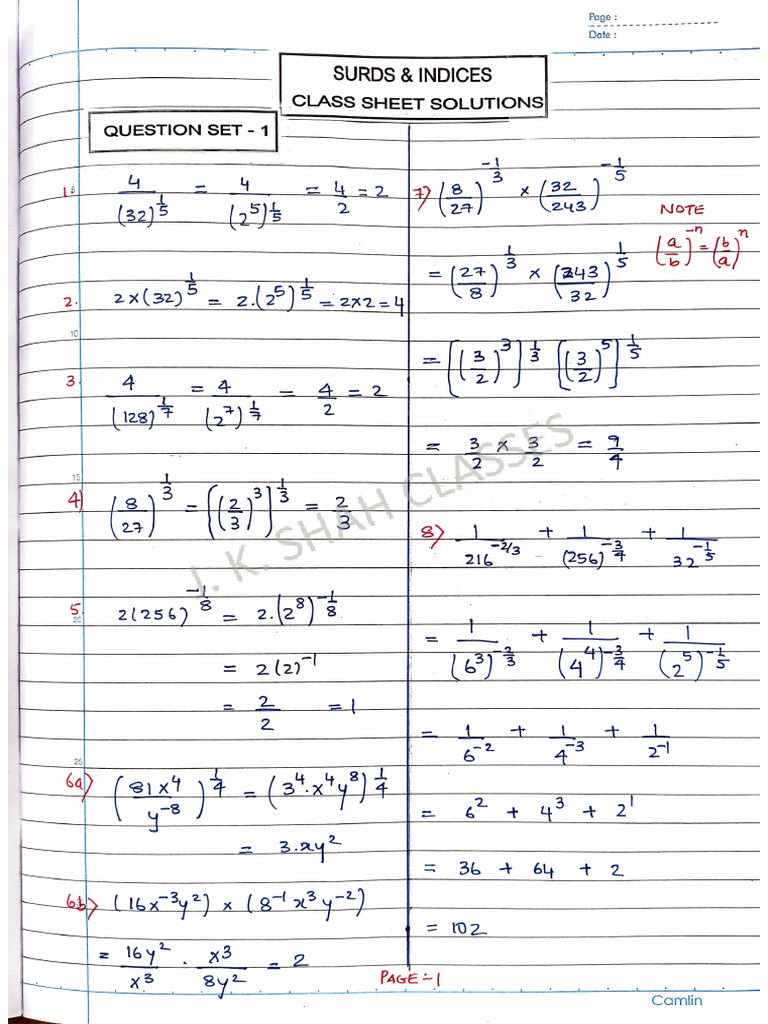 Page :
Date :
SURDS & INDICES
CLASS SHEET SOLUTIONS
QUESTION SET - 1
1. 4/(32)^(1/5) = 4/(2^5)^(1/5) = 4/2 = 2
2. 2×(32)^(1/5) = 2.(2^5)^(1/5) = 2×2 = 4
3. 4/(128)^(1/7) = 4/(2^7)^(1/7) = 4/2 = 2
4) (8/27)^(1/3) = [(2/3)^3]^(1/3) = 2/3
5. 2(256)^(-1/8) = 2.(2^8)^(-1/8)
= 2(2)^-1
= 2/2 = 1
6a) (81x^4/y^-8)^(1/4) = (3^4.x^4y^8)^(1/4)
= 3.xy^2
6b) (16x^-3y^2) × (8^-1x^3y^-2)
= 16y^2/x^3 . x^3/8y^2 = 2
7) (8/27)^(-1/3) × (32/243)^(-1/5)
NOTE
(a/b)^-n = (b/a)^n
= (27/8)^(1/3) × (243/32)^(1/5)
= [(3/2)^3]^(1/3) [(3/2)^5]^(1/5)
= 3/2 × 3/2 = 9/4
8) 1/216^(-2/3) + 1/(256)^(-3/4) + 1/32^(-1/5)
= 1/(6^3)^(-2/3) + 1/(4^4)^(-3/4) + 1/(2^5)^(-1/5)
= 1/6^-2 + 1/4^-3 + 1/2^-1
= 6^2 + 4^3 + 2^1
= 36 + 64 + 2
= 102
PAGE:-1
5
10
15
20
25
J. K. SHAH CLASSES
Camlin